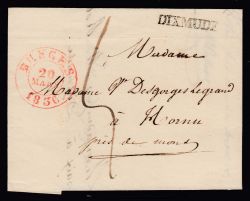 DIXMUDE
BRUGES
20
MAR
1836
Madame
Madame Ve Desgorges Legrand
à Hornu
près de mons